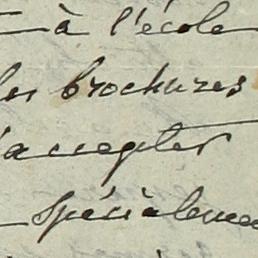 à l'école
les brochures
accepter
spécialeme